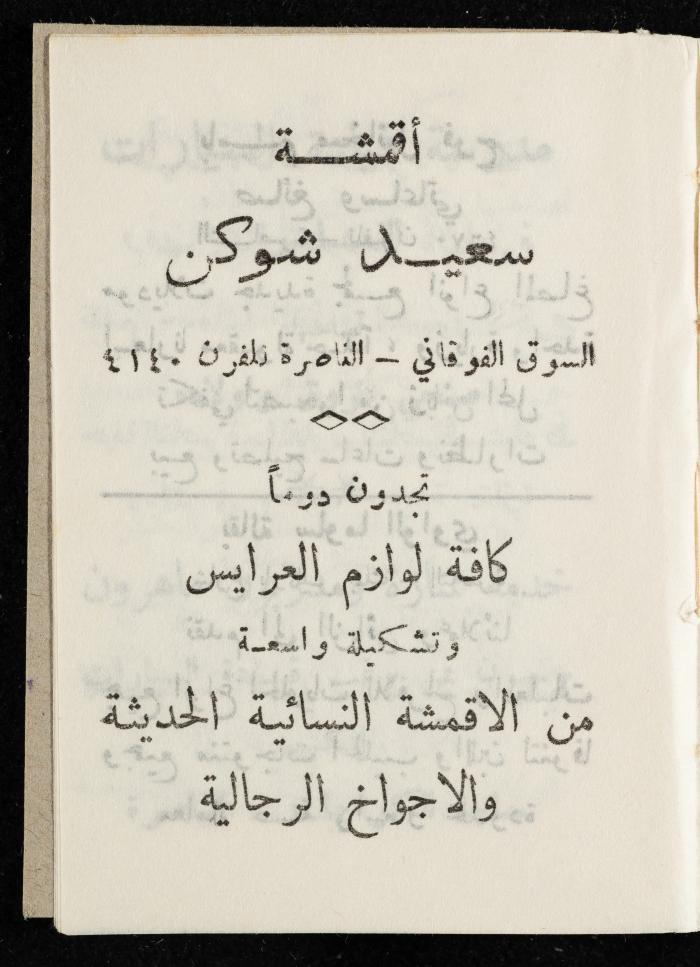 أقمشة
سعيد شوكن
السوق الفوقاني – الناصرة تلفون ٤١٤٠
تجدون دوماً
كافة لوازم العرايس
وتشكيلة واسعة
من الاقمشة النسائية الحديثة
والاجواخ الرجالية